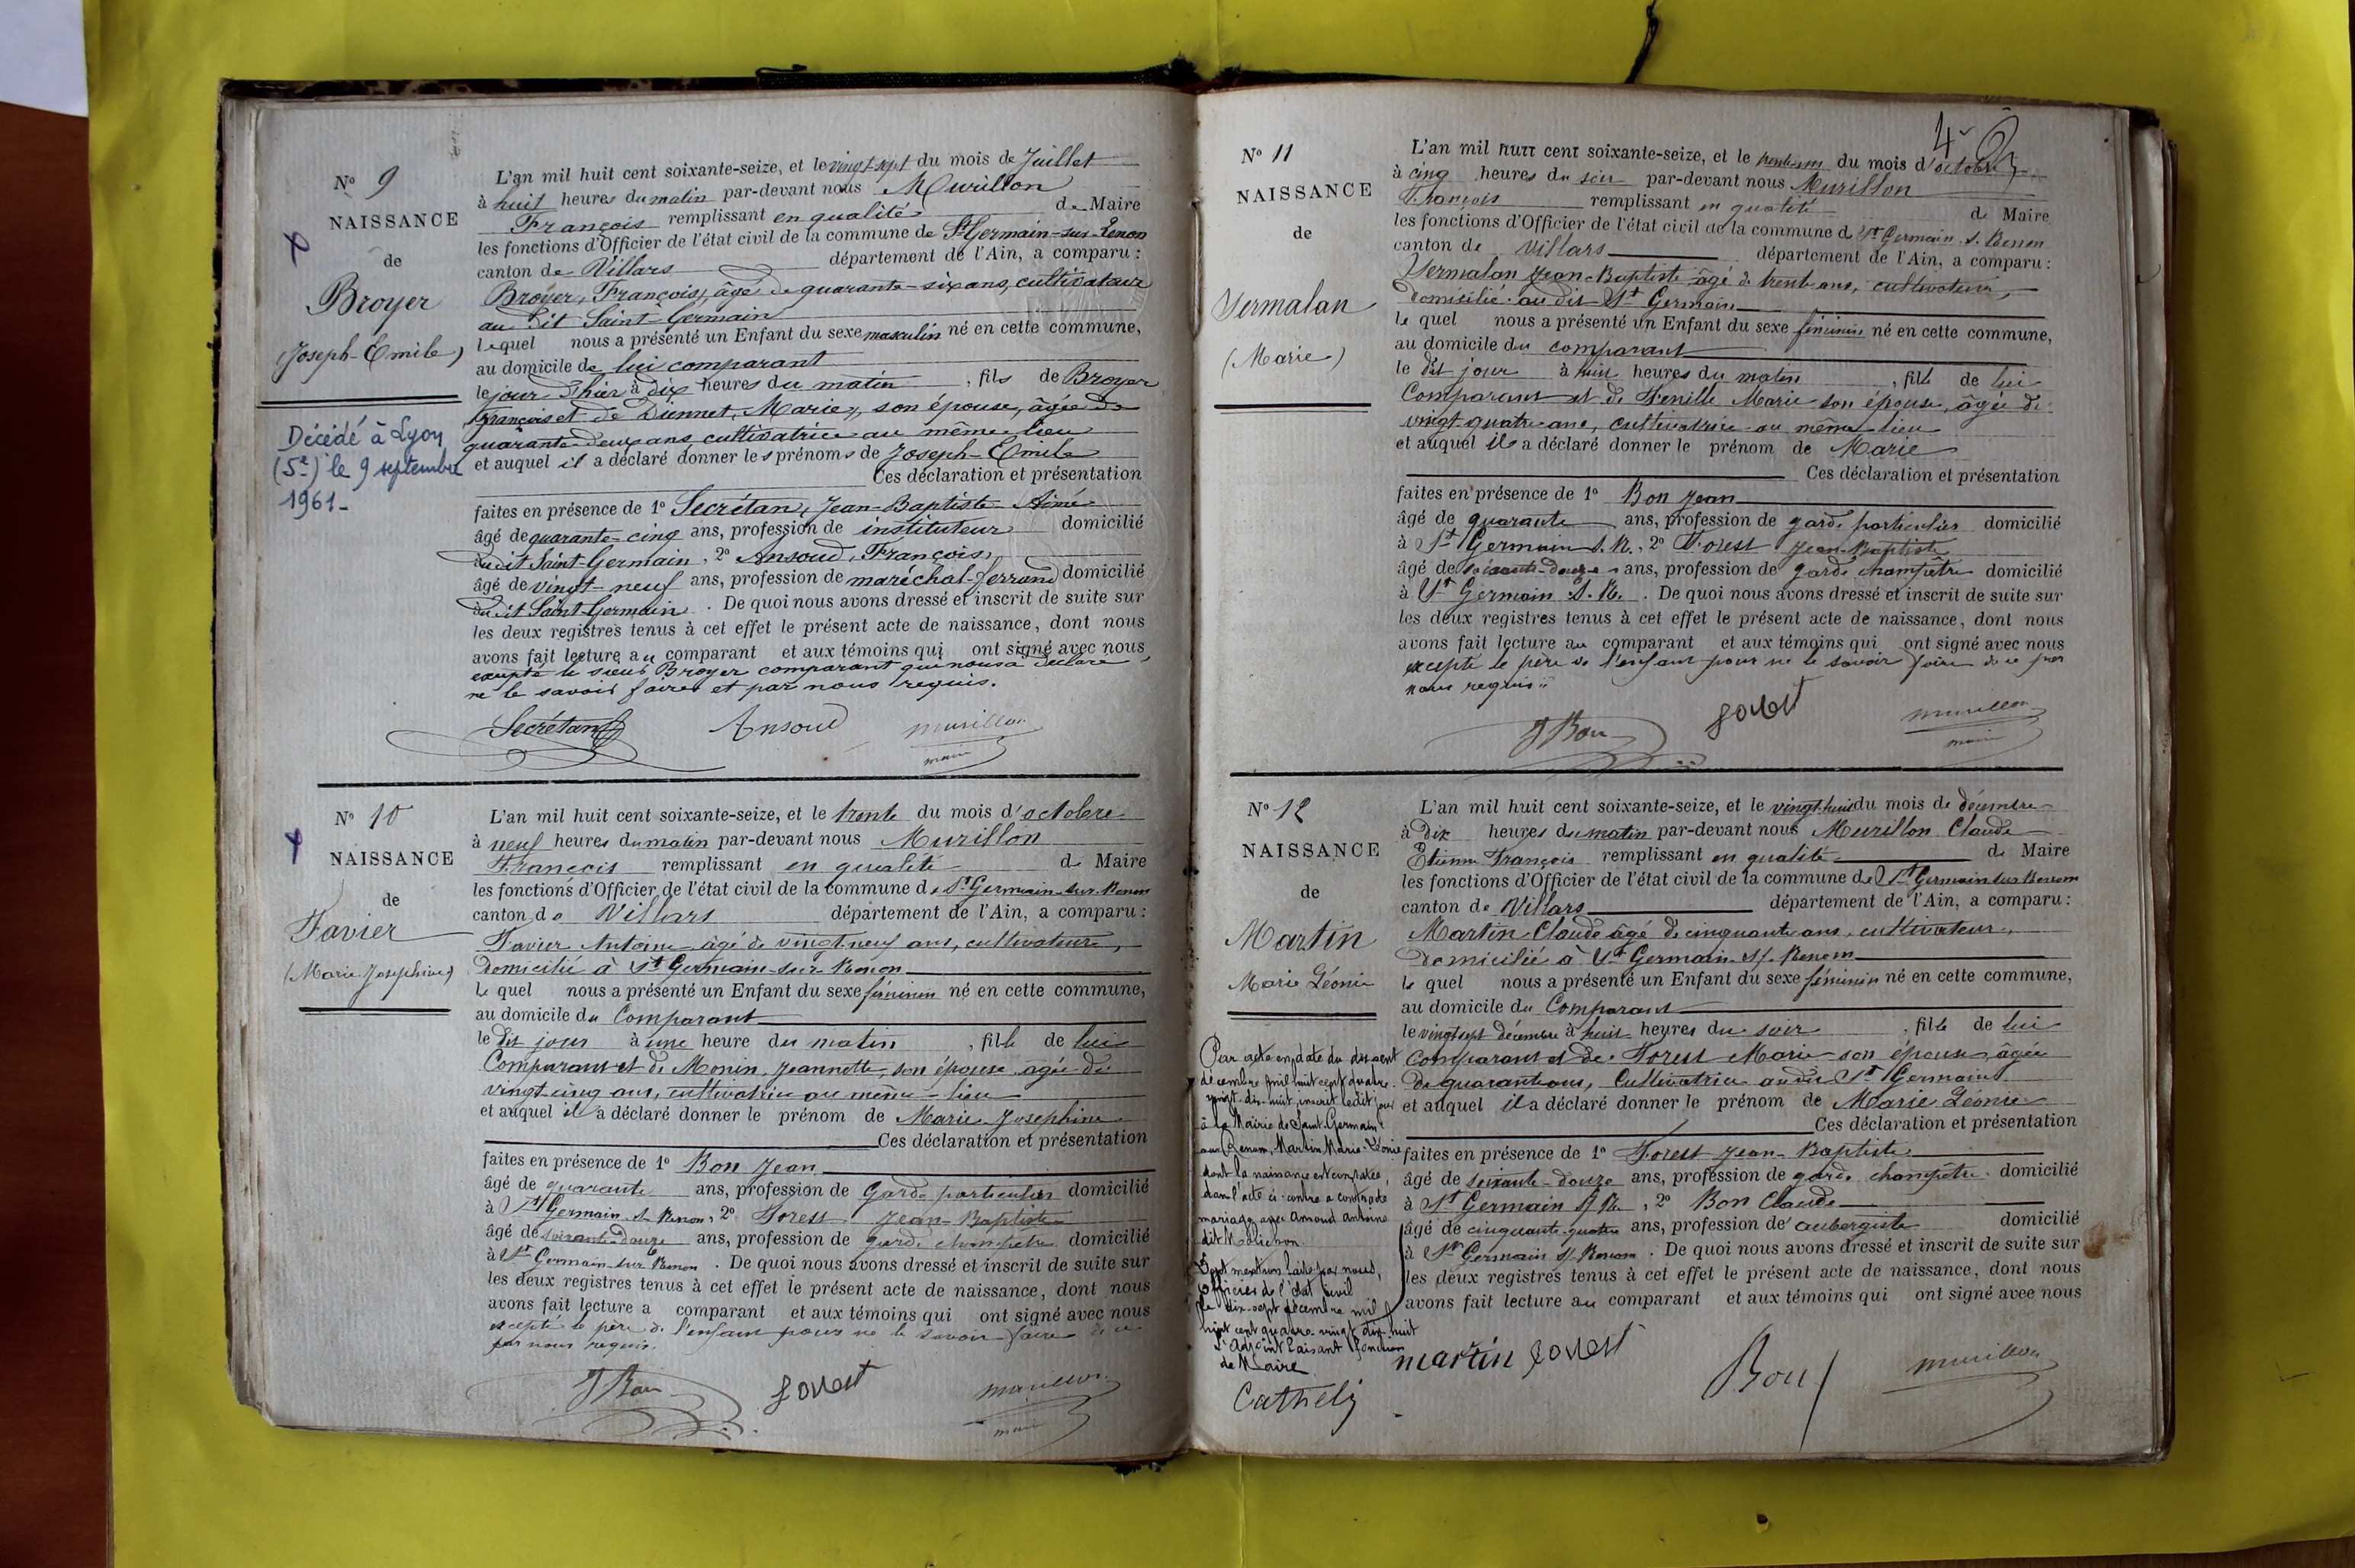 N° 9
NAISSANCE
de
Broyer
(Joseph-Émile)
Décédé à Lyon
(5e) le 9 septembre
1961-
L'an mil huit cent soixante-seize, et le vingt-sept du mois de Juillet
à huit heures du matin par-devant nous Murillon
François remplissant en qualité de Maire
les fonctions d'Officier de l'état civil de la commune de St Germain-sur-Renon
canton de Villars département de l'Ain, a comparu :
Broyer, François, âgé de quarante-six ans, cultivateur
au dit Saint-Germain
lequel nous a présenté un Enfant du sexe masculin né en cette commune,
au domicile de lui comparant
le jour d'hier à dix heures du matin, fils de Broyer
François et de Diennet, Marie, son épouse, âgée de
quarante-deux ans cultivatrice au même lieu
et auquel il a déclaré donner les prénoms de Joseph-Émile
Ces déclaration et présentation
faites en présence de 1° Secrétan, Jean-Baptiste Aimé
âgé de quarante-cinq ans, profession de instituteur domicilié
audit Saint-Germain, 2° Ansoud, François,
âgé de vingt-neuf ans, profession de maréchal-ferrand domicilié
audit Saint-Germain. De quoi nous avons dressé et inscrit de suite sur
les deux registres tenus à cet effet le présent acte de naissance, dont nous
avons fait lecture au comparant et aux témoins qui ont signé avec nous,
excepté le sieur Broyer comparant qui nous a déclaré
ne le savoir faire et par nous requis.
Secrétan Ansoud Murillon
maire
N° 10
NAISSANCE
de
Favier
(Marie Josephine)
L'an mil huit cent soixante-seize, et le trente du mois d'octobre
à neuf heures du matin par-devant nous Murillon
François remplissant en qualité de Maire
les fonctions d'Officier de l'état civil de la commune de St Germain-sur-Renon
canton de Villars département de l'Ain, a comparu :
Favier Antoine âgé de vingt-neuf ans, cultivateur,
domicilié à St Germain-sur-Renon
le quel nous a présenté un Enfant du sexe féminin né en cette commune,
au domicile du Comparant
le dit jour à une heure du matin, fille de lui
Comparant et de Monin, Jeannette, son épouse âgée de
vingt-cinq ans, cultivatrice au même lieu
et auquel il a déclaré donner le prénom de Marie Josephine
Ces déclaration et présentation
faites en présence de 1° Bon Jean
âgé de quarante ans, profession de Garde particulier domicilié
à St Germain s. Renon, 2° Forest Jean-Baptiste
âgé de soixante-douze ans, profession de garde champêtre domicilié
à St Germain sur Renon. De quoi nous avons dressé et inscrit de suite sur
les deux registres tenus à cet effet le présent acte de naissance, dont nous
avons fait lecture a comparant et aux témoins qui ont signé avec nous
excepté le père de l'enfant pour ne le savoir faire de ce
par nous requis.
J Bon forest murillon
maire
4
N° 11
NAISSANCE
de
Vermalan
(Marie)
L'an mil huit cent soixante-seize, et le trente-un du mois d'octobre
à cinq heures du soir par-devant nous Murillon
François remplissant en qualité de Maire
les fonctions d'Officier de l'état civil de la commune de St Germain s. Renon
canton de Villars département de l'Ain, a comparu :
Vermalan Jean-Baptiste âgé de trente ans, cultivateur,
domicilié au dit St Germain
le quel nous a présenté un Enfant du sexe féminin né en cette commune,
au domicile du comparant
le dit jour à huit heures du matin, fille de lui
Comparant et de Fenille Marie son épouse, âgée de
vingt-quatre ans, cultivatrice au même lieu
et auquel il a déclaré donner le prénom de Marie
Ces déclaration et présentation
faites en présence de 1° Bon Jean
âgé de quarante ans, profession de garde particulier domicilié
à St Germain s. R., 2° Forest Jean-Baptiste
âgé de soixante-douze ans, profession de garde champêtre domicilié
à St Germain s. R. De quoi nous avons dressé et inscrit de suite sur
les deux registres tenus à cet effet le présent acte de naissance, dont nous
avons fait lecture au comparant et aux témoins qui ont signé avec nous
excepté le père de l'enfant pour ne le savoir faire de ce par
nous requis
J Bon forest murillon
maire
N° 12
NAISSANCE
de
Martin
Marie Léonie
Par acte en date du dix sept
décembre mil huit cent quatre-
vingt-dix-huit, inscrit ledit jour
à la Mairie de Saint-Germain
sur Renon, Martin Marie-Léonie
dont la naissance est constatée
dans l'acte ci-contre a contracté
mariage avec Arnoud Antoine
dit Molichon.
Dont mention faite par nous,
officier de l'état civil
le dix-sept décembre mil
huit cent quatre-vingt dix-huit
L'adjoint faisant fonction
de Maire
Cathely
L'an mil huit cent soixante-seize, et le vingt-huit du mois de décembre
à dix heures du matin par-devant nous Murillon Claude
Etienne François remplissant en qualité de Maire
les fonctions d'Officier de l'état civil de la commune de St Germain sur Renom
canton de Villars département de l'Ain, a comparu :
Martin Claude âgé de cinquante ans, cultivateur,
domicilié à St Germain s/ Renom
le quel nous a présenté un Enfant du sexe féminin né en cette commune,
au domicile du Comparant
le vingt sept décembre à huit heures du soir, fille de lui
comparant et de Forest Marie son épouse, âgée
de quarante ans, Cultivatrice audit St Germain
et auquel il a déclaré donner le prénom de Marie Léonie
Ces déclaration et présentation
faites en présence de 1° Forest Jean-Baptiste
âgé de soixante-douze ans, profession de garde champêtre domicilié
à St Germain s/ Rn, 2° Bon Claude
âgé de cinquante-quatre ans, profession de aubergiste domicilié
à St Germain s/ Renom. De quoi nous avons dressé et inscrit de suite sur
les deux registres tenus à cet effet le présent acte de naissance, dont nous
avons fait lecture au comparant et aux témoins qui ont signé avec nous
martin forest Bon murillon